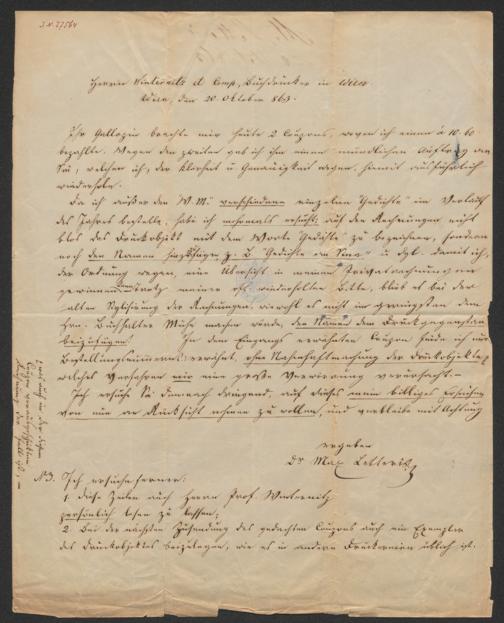 J.N. 77564
Herrn Winternitz & Comp, Buchdrucker in Wien
Wien, den 20 Oktober 1863.
Ihr Galopin brachte mir heute 2 Coupons, wovon ich einen à 10.60
bezahlte. Wegen des zweiten gab ich ihm einen mündlichen Auftrag an
Sie, welchen ich, der Klarheit u Genauigkeit wegen, hiemit ausführlich
wiederhole.
Da ich außer den verschiedene einzelne Gedichte im Verlauf
des Jahres bestelle, habe ich mehrmals ersucht: auf den Rechnungen nicht
blos das Druckobjekt mit dem Worte Gedichte zu bezeichnen, sondern
noch den Namen hinzuzufügen z. B. Gedichte u dgl. damit ich,
der Ordnung wegen, eine Übersicht in meiner Privatrechnung
Trotz meiner oft wiederholten Bitte, blieb es bei der
alten Stylisirung der Rechnungen, wiewohl es nicht im geringsten dem
Hrn. Buchhalter Mühe machen würde, den Namen dem Druckgegenstand
beizufügen. In dem Eingangs erwähnten Coupon finde ich nur
Bestellungsnummern erwähnt, ohne Namhaftmachung der Druckobjekte,
welches Verfahren mir eine große Verwirrung verursacht. —
Ich ersuche Sie demnach dringend, auf dieses mein billiges Ersuchen
von nun an Rücksicht nehmen zu wollen, und verbleibe mit Achtung
ergeben
Dr Max Letteris
NB. Ich ersuche ferner:
1. diese Zeilen auch Herrn Prof. Winternitz
persönlich lesen zu lassen;
2. Bei der nächsten Zusendung des gedachten Coupons auch ein Exemplar
des Druckobjektes beizulegen, wie es in andern Druckereien üblich ist.